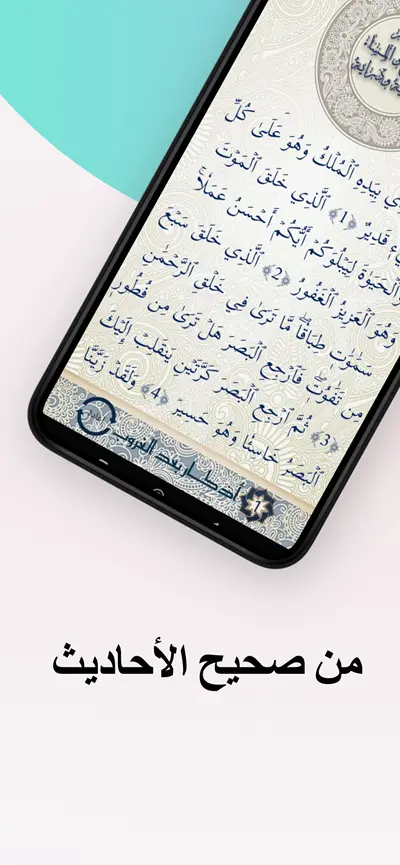 بِيَدِهِ الْمُلْكُ وَهُوَ عَلَىٰ كُلِّ
قَدِيرٌ ﴿1﴾ الَّذِي خَلَقَ الْمَوْتَ
وَالْحَيَوٰةَ لِيَبْلُوَكُمْ أَيُّكُمْ أَحْسَنُ عَمَلًا
وَهُوَ الْعَزِيزُ الْغَفُورُ ﴿2﴾ الَّذِي خَلَقَ سَبْعَ
سَمَٰوَٰتٍ طِبَاقًا مَّا تَرَىٰ فِي خَلْقِ الرَّحْمَٰنِ
مِن تَفَٰوُتٍ فَارْجِعِ الْبَصَرَ هَلْ تَرَىٰ مِن فُطُورٍ
﴿3﴾ ثُمَّ ارْجِعِ الْبَصَرَ كَرَّتَيْنِ يَنقَلِبْ إِلَيْكَ
الْبَصَرُ خَاسِئًا وَهُوَ حَسِيرٌ ﴿4﴾ وَلَقَدْ زَيَّنَّا
أذكار بعد الغروب
من صحيح الأحاديث